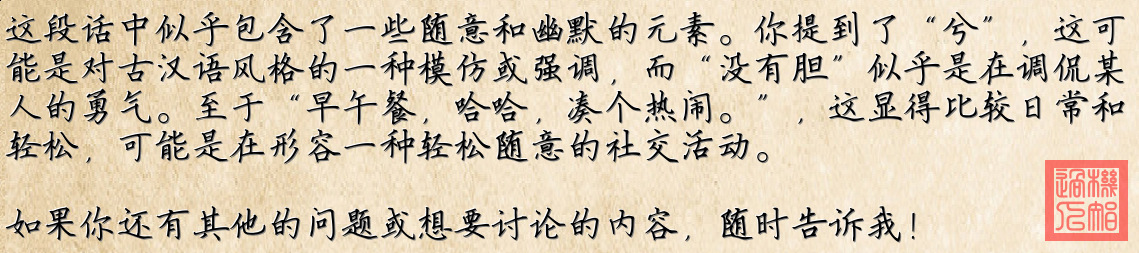 这段话中似乎包含了一些随意和幽默的元素。你提到了“兮”，这可
能是对古汉语风格的一种模仿或强调，而“没有胆”似乎是在调侃某
人的勇气。至于“早午餐，哈哈，凑个热闹。”，这显得比较日常和
轻松，可能是在形容一种轻松随意的社交活动。
如果你还有其他的问题或想要讨论的内容，随时告诉我！